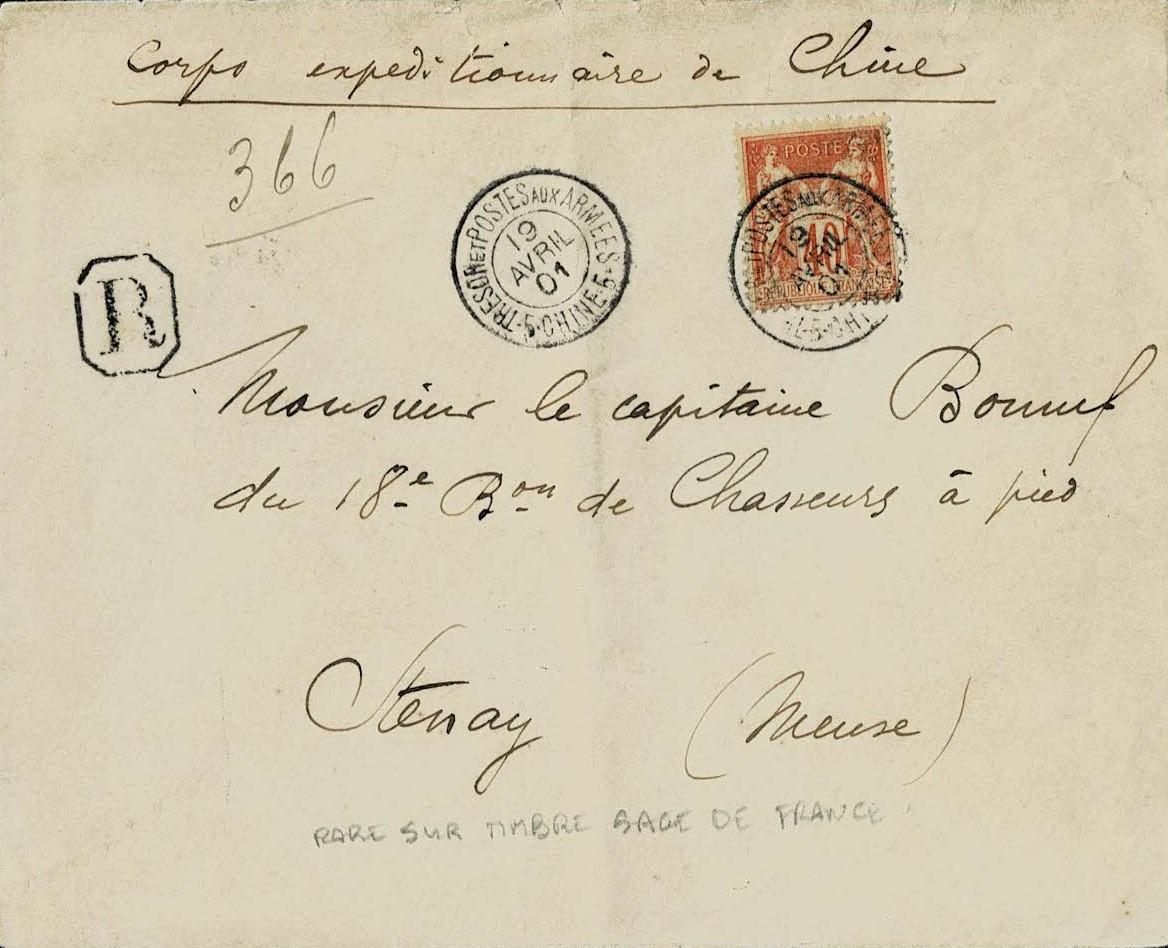 Corps expeditionnaire de Chine
366
POSTE
40
REPUBLIQUE FRANÇAISE
TRESOR ET POSTES AUX ARMEES
19
AVRIL
01
·5·CHINE·5·
POSTES AUX ARMEES
19
AVRIL
01
R
Monsieur le capitaine
du 18e Bon de Chasseurs à pied
Stenay (Meuse)
RARE SUR TIMBRE SAGE DE FRANCE